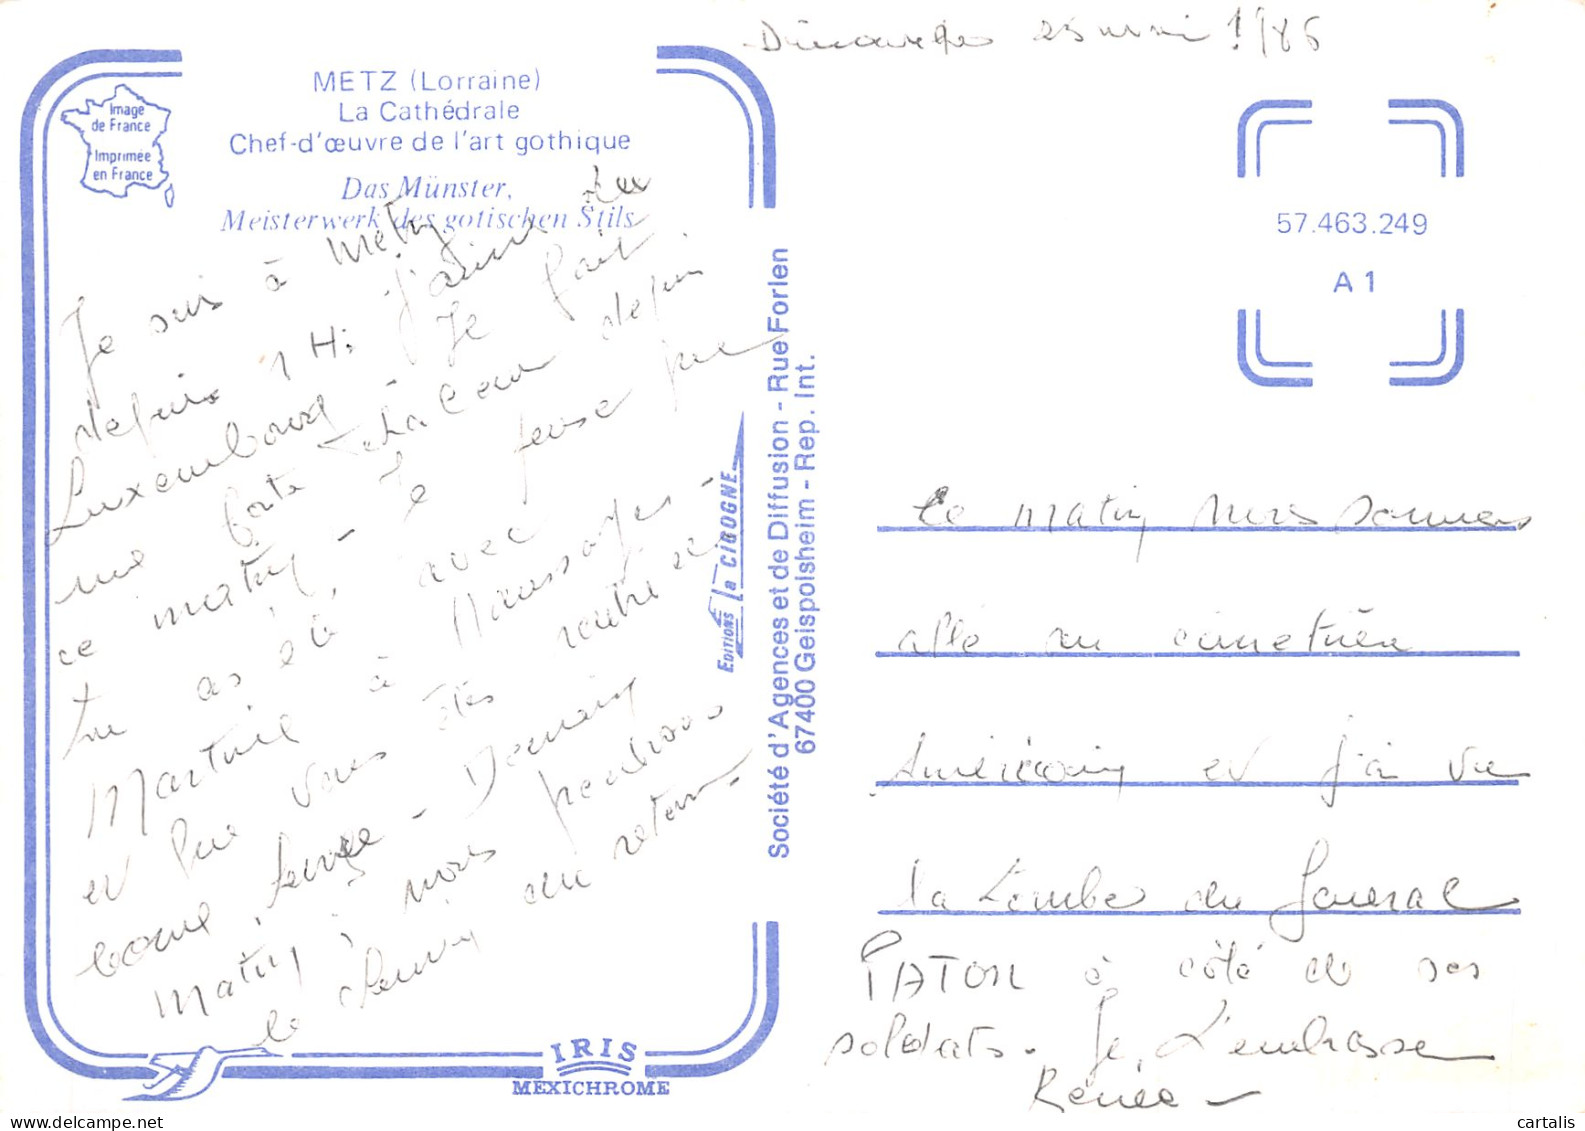 Dimanche 25 mai 1986
METZ (Lorraine)
La Cathédrale
Chef-d'œuvre de l'art gothique
Das Münster,
Meisterwerk des gotischen Stils
Image
de France
Imprimée
en France
Je suis à Metz
depuis 1H; j'arrive de
Luxembourg - Je fait
une forte chaleur depuis
ce matin - Je pense que
tu as été avec
Martine à Maussages -
et que vous êtes rentré
bonne - Demain
matin nous prendrons
le chemin du retour -
Société d'Agences et de Diffusion - Rue Forlen
67400 Geispolsheim - Rep. Int.
EDITIONS la CIGOGNE
IRIS
MEXICHROME
57.463.249
A 1
Ce matin nous sommes
allé au cimetière
Américain et j'ai vu
la tombe du général
PATON à côté de ses
soldats. Je t'embrasse
Renée -
cartalis
www.delcampe.net